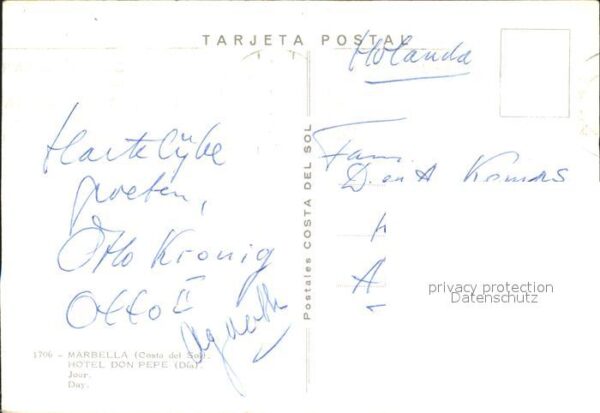 TARJETA POSTAL
Holanda
Hartelijke
groeten,
Otto Kronig
Otto II
Fam.
D. en A
A
Postales COSTA DEL SOL
privacy protection
Datenschutz
1706 - MARBELLA (Costa del Sol).
HOTEL DON PEPE (Día).
Jour.
Day.